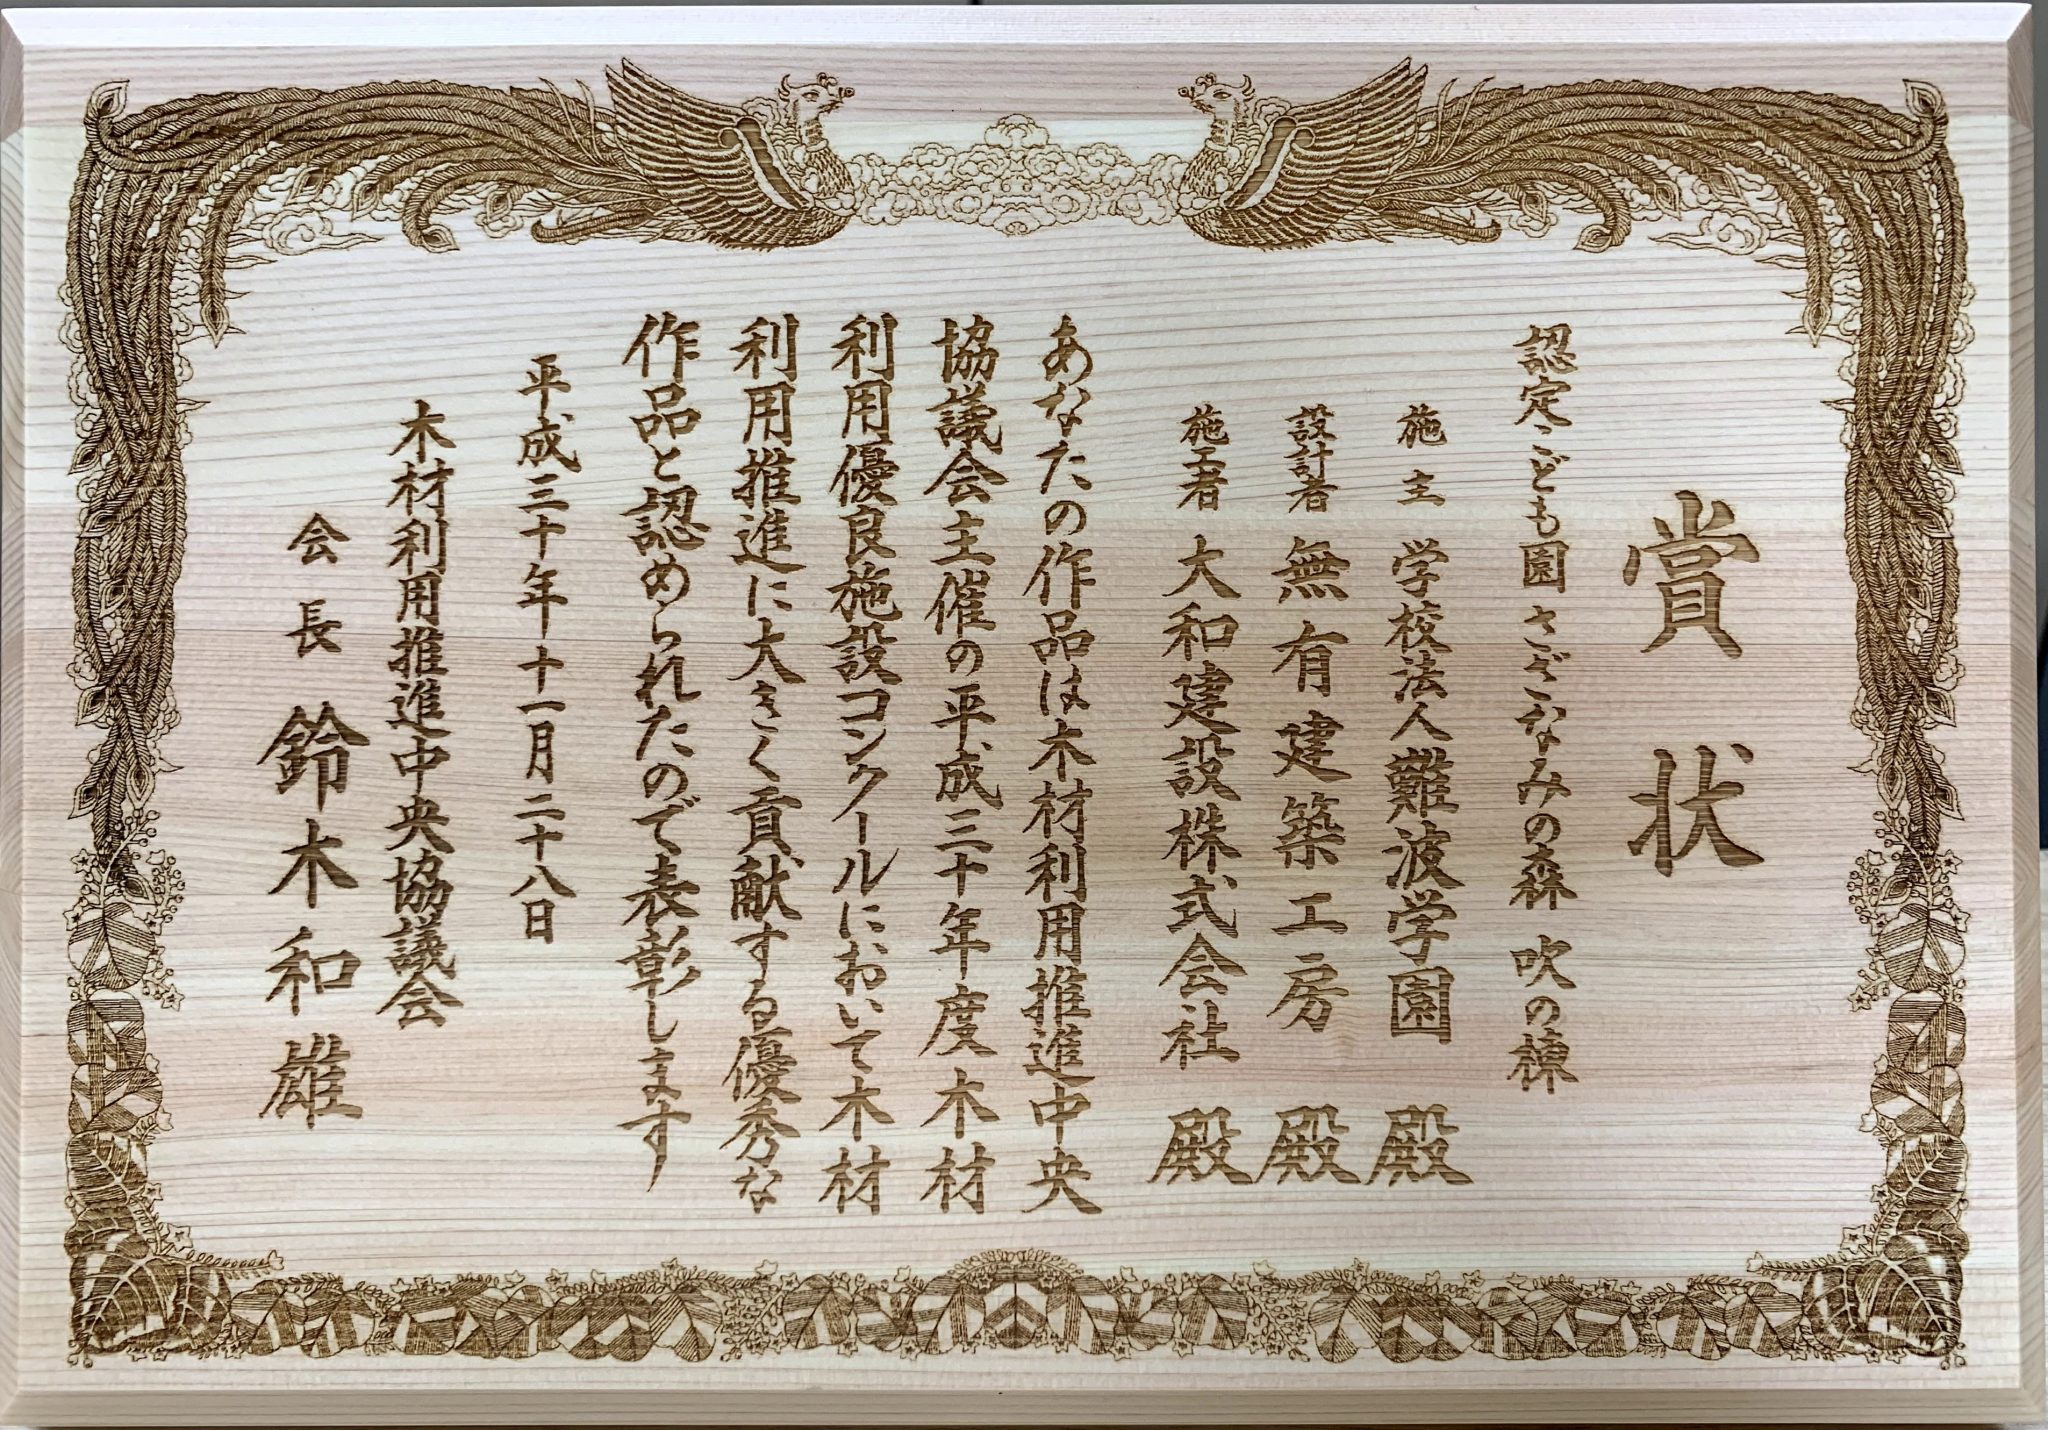 賞状
認定こども園 さざなみの森 吹の棟
施主 学校法人難波学園 殿
設計者 無有建築工房 殿
施工者 大和建設株式会社 殿
あなたの作品は木材利用推進中央
協議会主催の平成三十年度木材
利用優良施設コンクールにおいて木材
利用推進に大きく貢献する優秀な
作品と認められたので表彰します
平成三十年十一月二十八日
木材利用推進中央協議会
会長 鈴木和雄